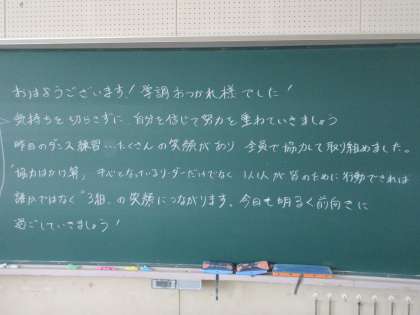 おはようございます！学調おつかれ様でした！
気持ちを切らさずに 自分を信じて努力を重ねていきましょう
昨日のダンス練習…たくさんの笑顔があり 全員で協力して取り組めました。
「協力はかけ算」 中心となっているリーダーだけでなく 1人1人が 皆のために行動できれば
誰かではなく "3組"の笑顔につながります。今日も明るく前向きに
過ごしていきましょう！